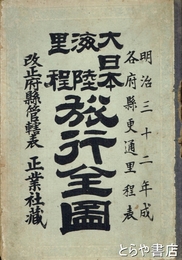 明治三十二年成
各府縣更通里程表
大日本
海陸
里程
旅行全圖
改正府縣管轄表 正業社藏
とらや書店